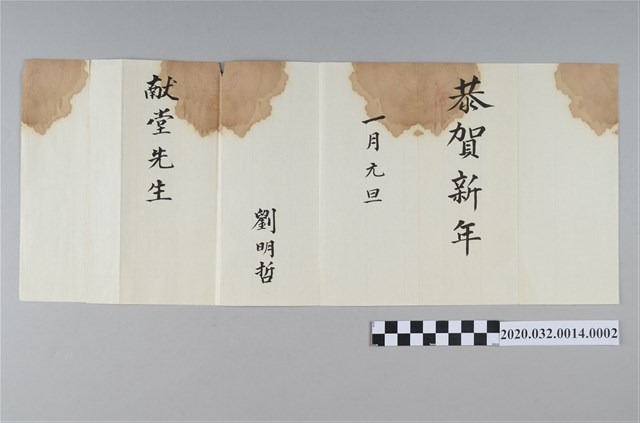 恭賀新年
一月元旦
劉明哲
献堂先生
2020.032.0014.0002